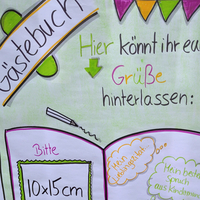 Gästebuch
Hier könnt ihr eu
Grüße
hinterlassen:
Bitte
10x15cm
Mein
Mein
Spruch